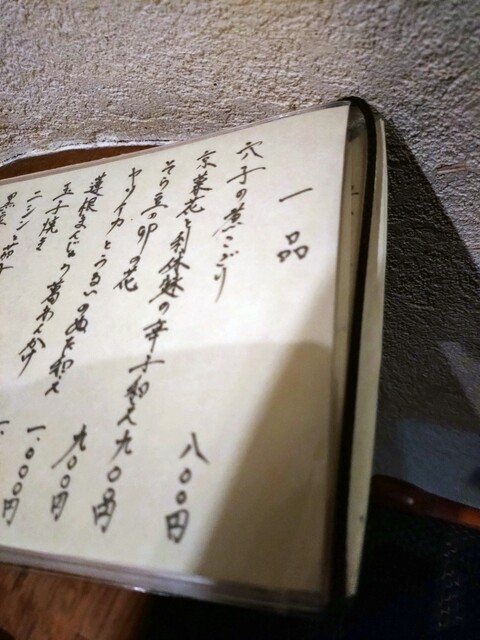 一品
穴子の煮こごり
京菜花と利休麩の辛子和え
そら豆の卯の花
ヤリイカとうるいのぬた和え
蓮根まんじゅう葛あんかけ
玉子焼き
ニシン 茄子
八〇〇円
九〇〇円
九〇〇円
一、〇〇〇円